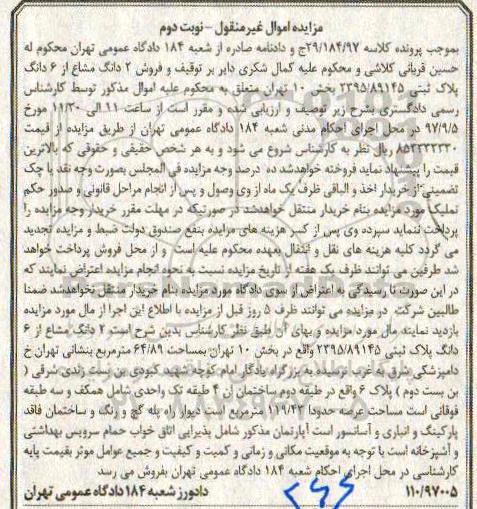 مزایده اموال غیر منقول - نوبت دوم
بموجب پرونده کلاسه ۲۹/۱۸۴/۹۷ج و دادنامه صادره از شعبه ۱۸۴ دادگاه عمومی تهران محکوم له
حسین قربانی کلاشی و محکوم علیه کمال شکری دایر بر توقیف و فروش ۲ دانگ مشاع از ۶ دانگ
پلاک ثبتی ۲۳۹۵/۸۹۱۴۵ بخش ۱۰ تهران متعلق به محکوم علیه اموال مذکور توسط کارشناس
رسمی دادگستری بشرح زیر توصیف و ارزیابی شده و مقرر است از ساعت ۱۱ الی ۱۱/۳۰ مورخ
۹۷/۹/۵ در محل اجرای احکام مدنی شعبه ۱۸۴ دادگاه عمومی تهران از طریق مزایده از قیمت
۸۵۳۳۳۳۳۳۰ ریال نظر به کارشناس شروع می شود و به هر شخص حقیقی و حقوقی که بالاترین
قیمت را پیشنهاد نماید فروخته خواهدشد ده درصد وجه مزایده فی المجلس بصورت وجه نقد یا چک
تضمینی از خریدار اخذ و الباقی ظرف یک ماه از وی وصول و پس از انجام مراحل قانونی و صدور حکم
تملیک مورد مزایده بنام خریدار منتقل خواهدشد در صورتیکه در مهلت مقرر خریدار وجه مزایده را
پرداخت ننماید سپرده وی پس از کسر هزینه های مزایده بنفع صندوق دولت ضبط و مزایده تجدید
می گردد کلیه هزینه های نقل و انتقال بعهده محکوم علیه است و از محل فروش پرداخت خواهد
شد طرفین می توانند ظرف یک هفته از تاریخ مزایده نسبت به نحوه انجام مزایده اعتراض نمایند که
در این صورت تا رسیدگی به اعتراض از سوی دادگاه مورد مزایده بنام خریدار منتقل نخواهدشد ضمنا
طالبین شرکت در مزایده می توانند ظرف ۵ روز قبل از مزایده با اطلاع این اجرا از مال مورد مزایده
بازدید نمایند. مال مورد مزایده و بهای آن طبق نظر کارشناس بدین شرح است، ۲ دانگ مشاع از ۶
دانگ پلاک ثبتی ۲۳۹۵/۸۹۱۴۵ واقع در بخش ۱۰ تهران بمساحت ۶۴/۸۹ مترمربع بنشانی تهران خ
دامپزشکی شرق به غرب نرسیده به بزرگراه یادگار امام کوچه شهید کبودی بن بست زندی شرقی (
بن بست دوم ) پلاک ۶ واقع در طبقه دوم ساختمان آن ۴ طبقه تک واحدی شامل همکف و سه طبقه
فوقانی است مساحت عرصه حدودا ۱۱۹/۴۲ مترمربع است دیوار راه پله گچ و رنگ و ساختمان فاقد
پارکینگ و انباری و آسانسور است آپارتمان مذکور شامل پذیرایی اتاق خواب حمام سرویس بهداشتی
و آشپزخانه است با توجه به موقعیت مکانی و زمانی و کمیت و کیفیت و جمیع عوامل موثر بقیمت پایه
کارشناسی در محل اجرای احکام شعبه ۱۸۴ دادگاه عمومی تهران بفروش می رسد
۱۱۰/۹۷۰۰۵ دادورز شعبه ۱۸۴ دادگاه عمومی تهران